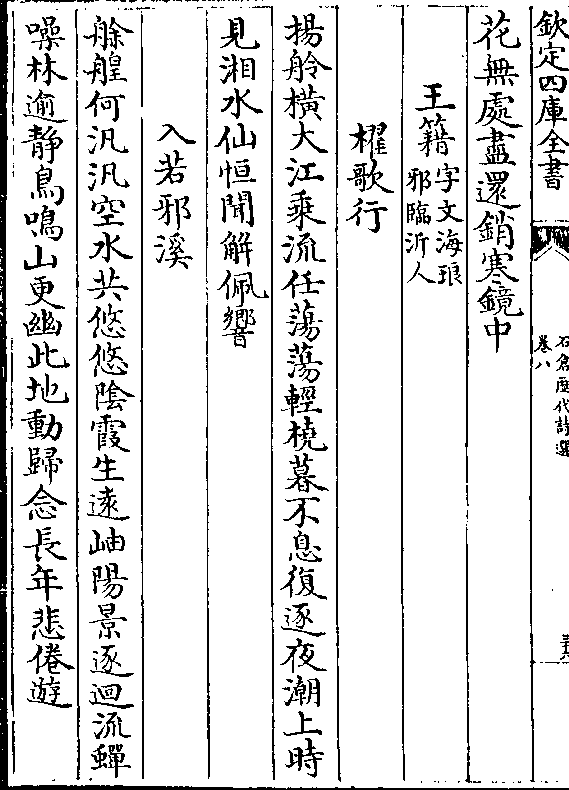 欽定四庫全書
石倉歷代詩選
卷八
花無處盡還銷寒鏡中
王籍字文海琅
邪臨沂人
櫂歌行
揚舲橫大江乗流任蕩蕩輕橈暮不息復逐夜潮上時
見湘水仙恒聞解佩響
入若邪溪
艅艎何汎汎空水共悠悠陰霞生遠岫陽景逐迴流蟬
噪林逾静鳥鳴山更幽此地動歸念長年悲倦遊